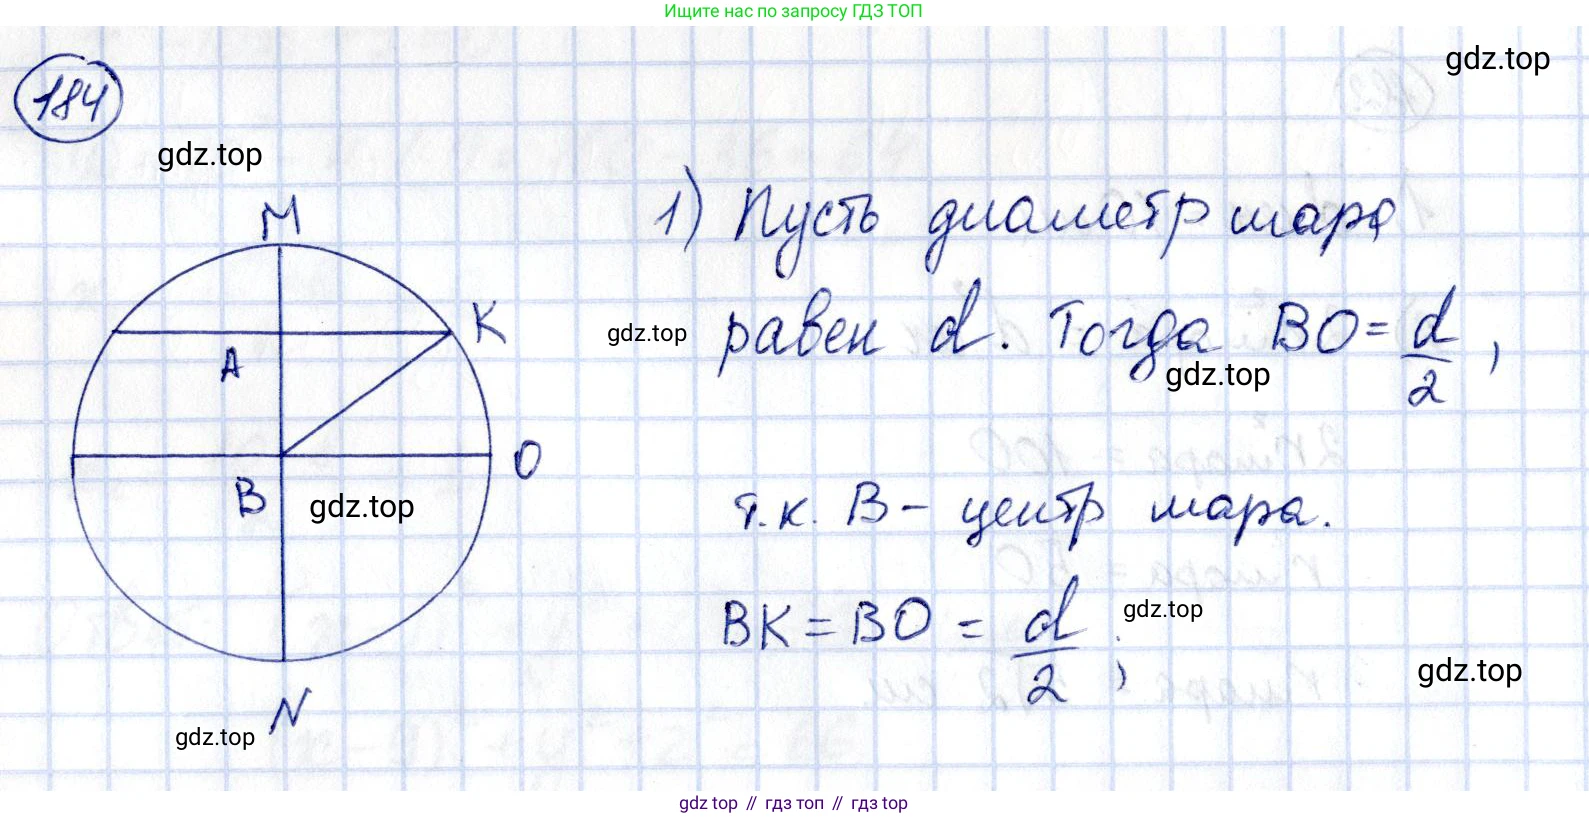 Ищите нас по запросу ГДЗ ТОП
gdz.top
184
gdz.top
M
1) Пусть диаметр шара
K
gdz.top
равен d. Тогда BO = d/2,
A
gdz.top
O
B
gdz.top
т.к. B – центр шара.
BK = BO = d/2;
gdz.top
gdz.top
N
gdz.top
gdz top // гдз топ // гдз top